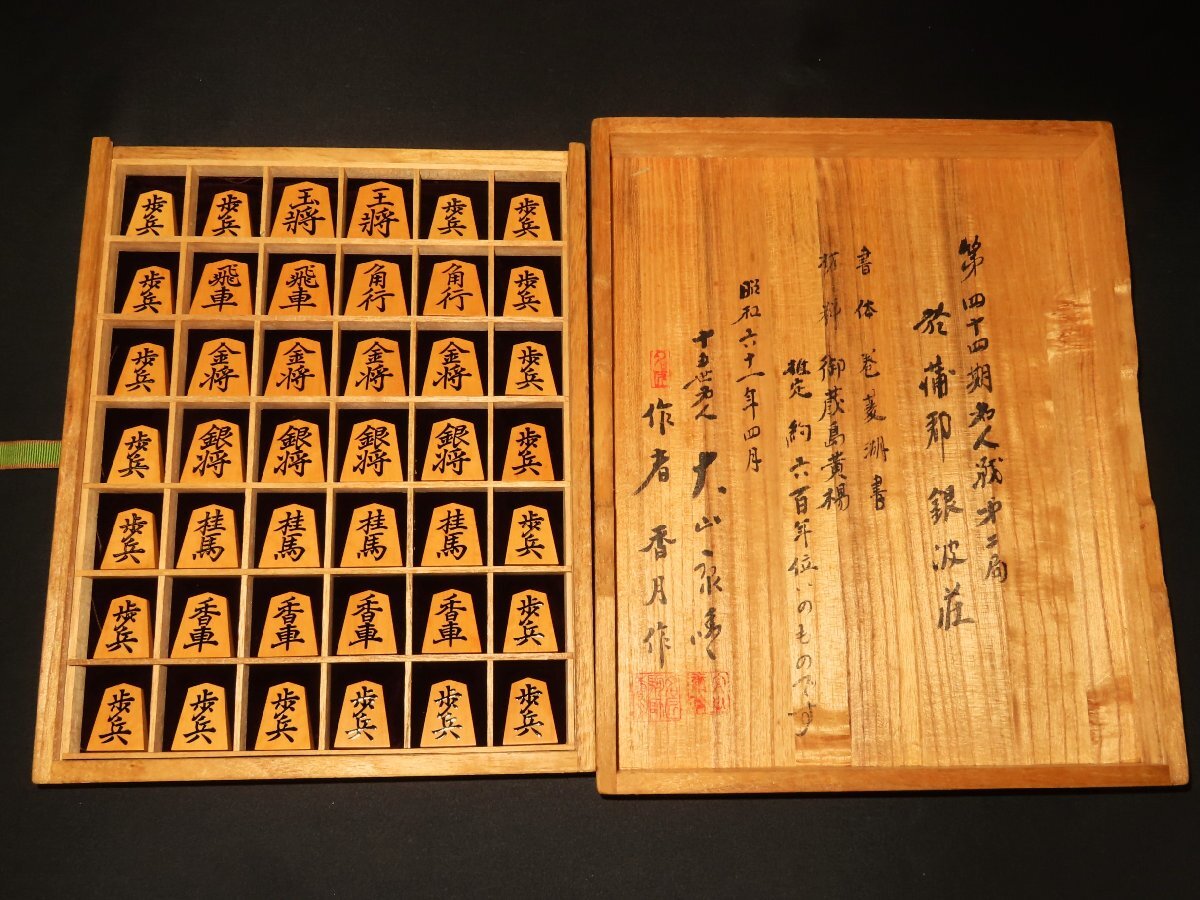 歩兵 歩兵 玉将 王将 歩兵 歩兵
歩兵 飛車 飛車 角行 角行 歩兵
歩兵 金将 金将 金将 金将 歩兵
歩兵 銀将 銀将 銀将 銀将 歩兵
歩兵 桂馬 桂馬 桂馬 桂馬 歩兵
歩兵 香車 香車 香車 香車 歩兵
歩兵 歩兵 歩兵 歩兵 歩兵 歩兵
第四十四期名人戦第二局
於蒲郡銀波荘
書体 巻菱湖書
材料 御蔵島黄楊
推定約六百年位のものです
昭和六十一年四月
十五世名人 大山康晴
作者 香月作